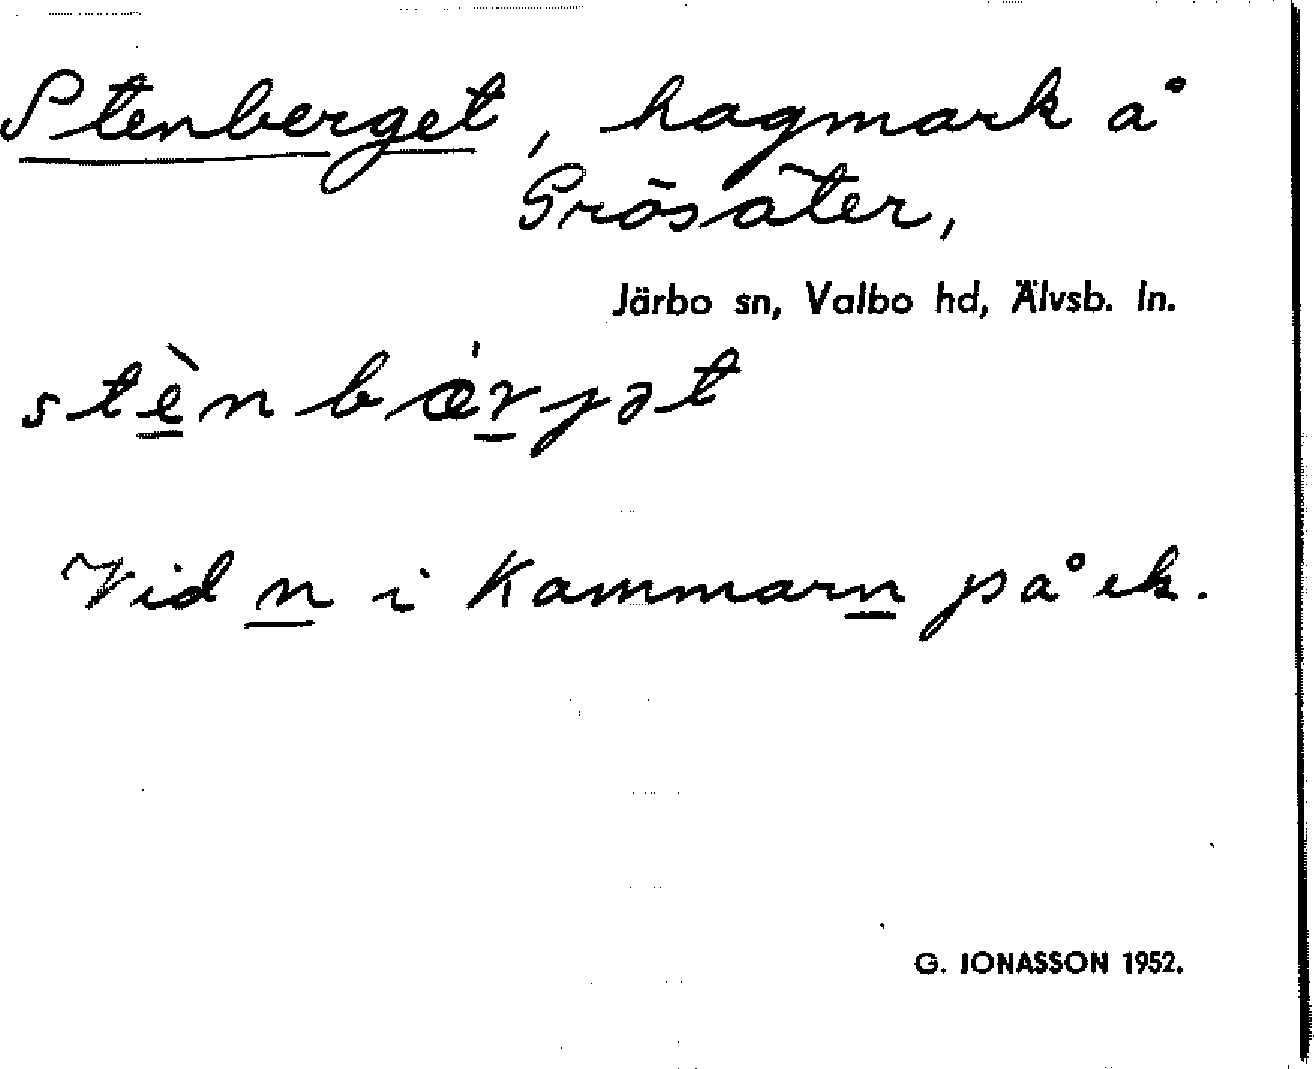 Stenberget, hagmark å
Grösäter,
Järbo sn, Valbo hd, Älvsb. ln.
stèn bǽrjət
Vid n i Kammarn på ek.
G. JONASSON 1952.